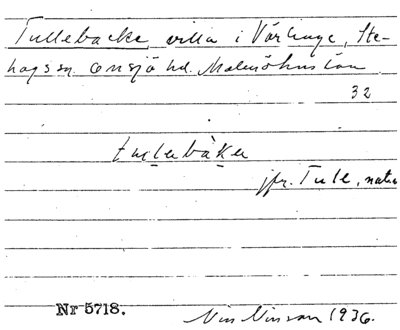 Tullebacke, villa i Vårhuge, Ste-
hags sn. Onsjö hd. Malmöhus län
32
tuləbàkə
jfr. Tulle, natu
Nr 5718.
Nils Nilsson 1936.